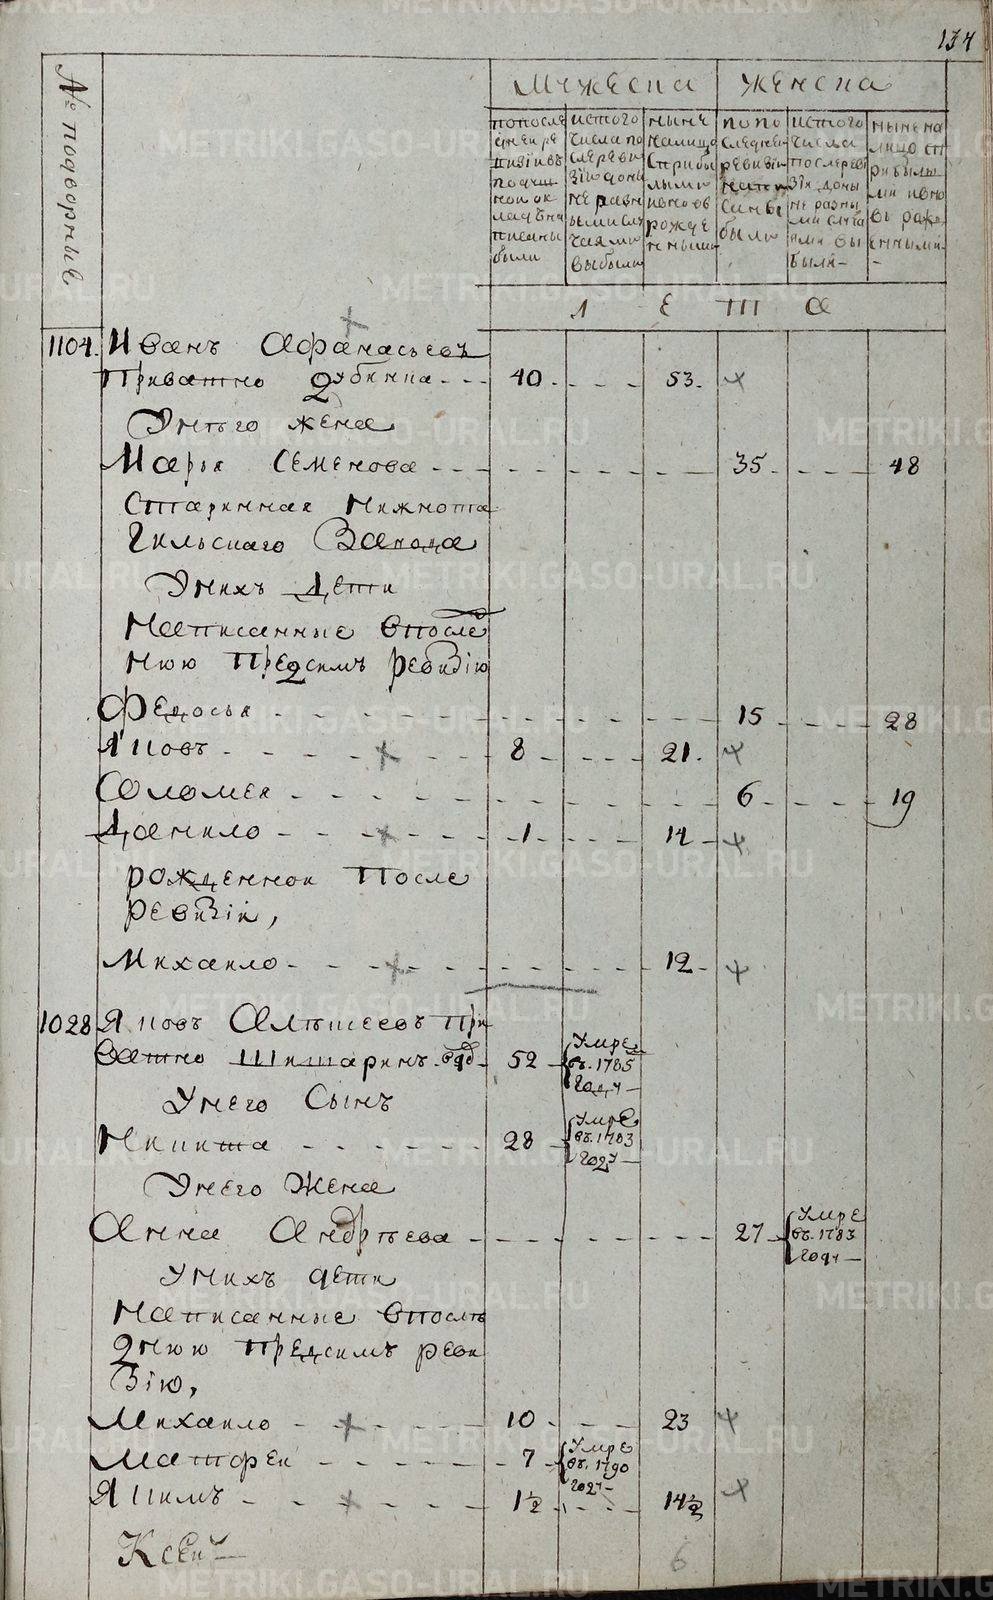 134
№ подворные
мужеска
женска
попосле
дней ре
визіи въ
подуш
ной ок
ладъ на
писаны
были
истого
числа по
сле реви
зіи до ны
не разн
выбыли
ныне
налицо
с прибы
лыми
и внов
рожде
нными
попо
следней
ревизіи
были
истого
числа
после реви
зіи до ны
не разны
ми случа
ями вы
были
ныне на
лицо с п
рибылы
ми и вно
вь рож
енными
Л Е Т А
1104. Иванъ Афанасьевъ
Приватно Дубкина 40 53
У него жена
Марья Семенова 35 48
Старинная Нижнота
гильскаго Завода
У нихъ дети
Написанные впосле
нюю предсимъ ревизію
Федосья 15 28
Яковъ 8 21
Соломея 6 19
Данило 1 14
рожденной после
ревизіи,
Михайло 12
1028 Яковъ Алѣшеевъ При
ватно Шишаринъ вдо 52 Умре въ 1785 году
У него Сынъ
Никита 28 Умре въ 1783 году
У него Жена
Анна Андрѣева 27 Умре въ 1783 году
У нихъ дети
Написанные впослѣ
днюю предсимъ реви
зію,
Михайло 10 23
Матфей 7 Умре въ 1790 году
Якимъ 1½ 14½
6
METRIKI.GASO-URAL.RU